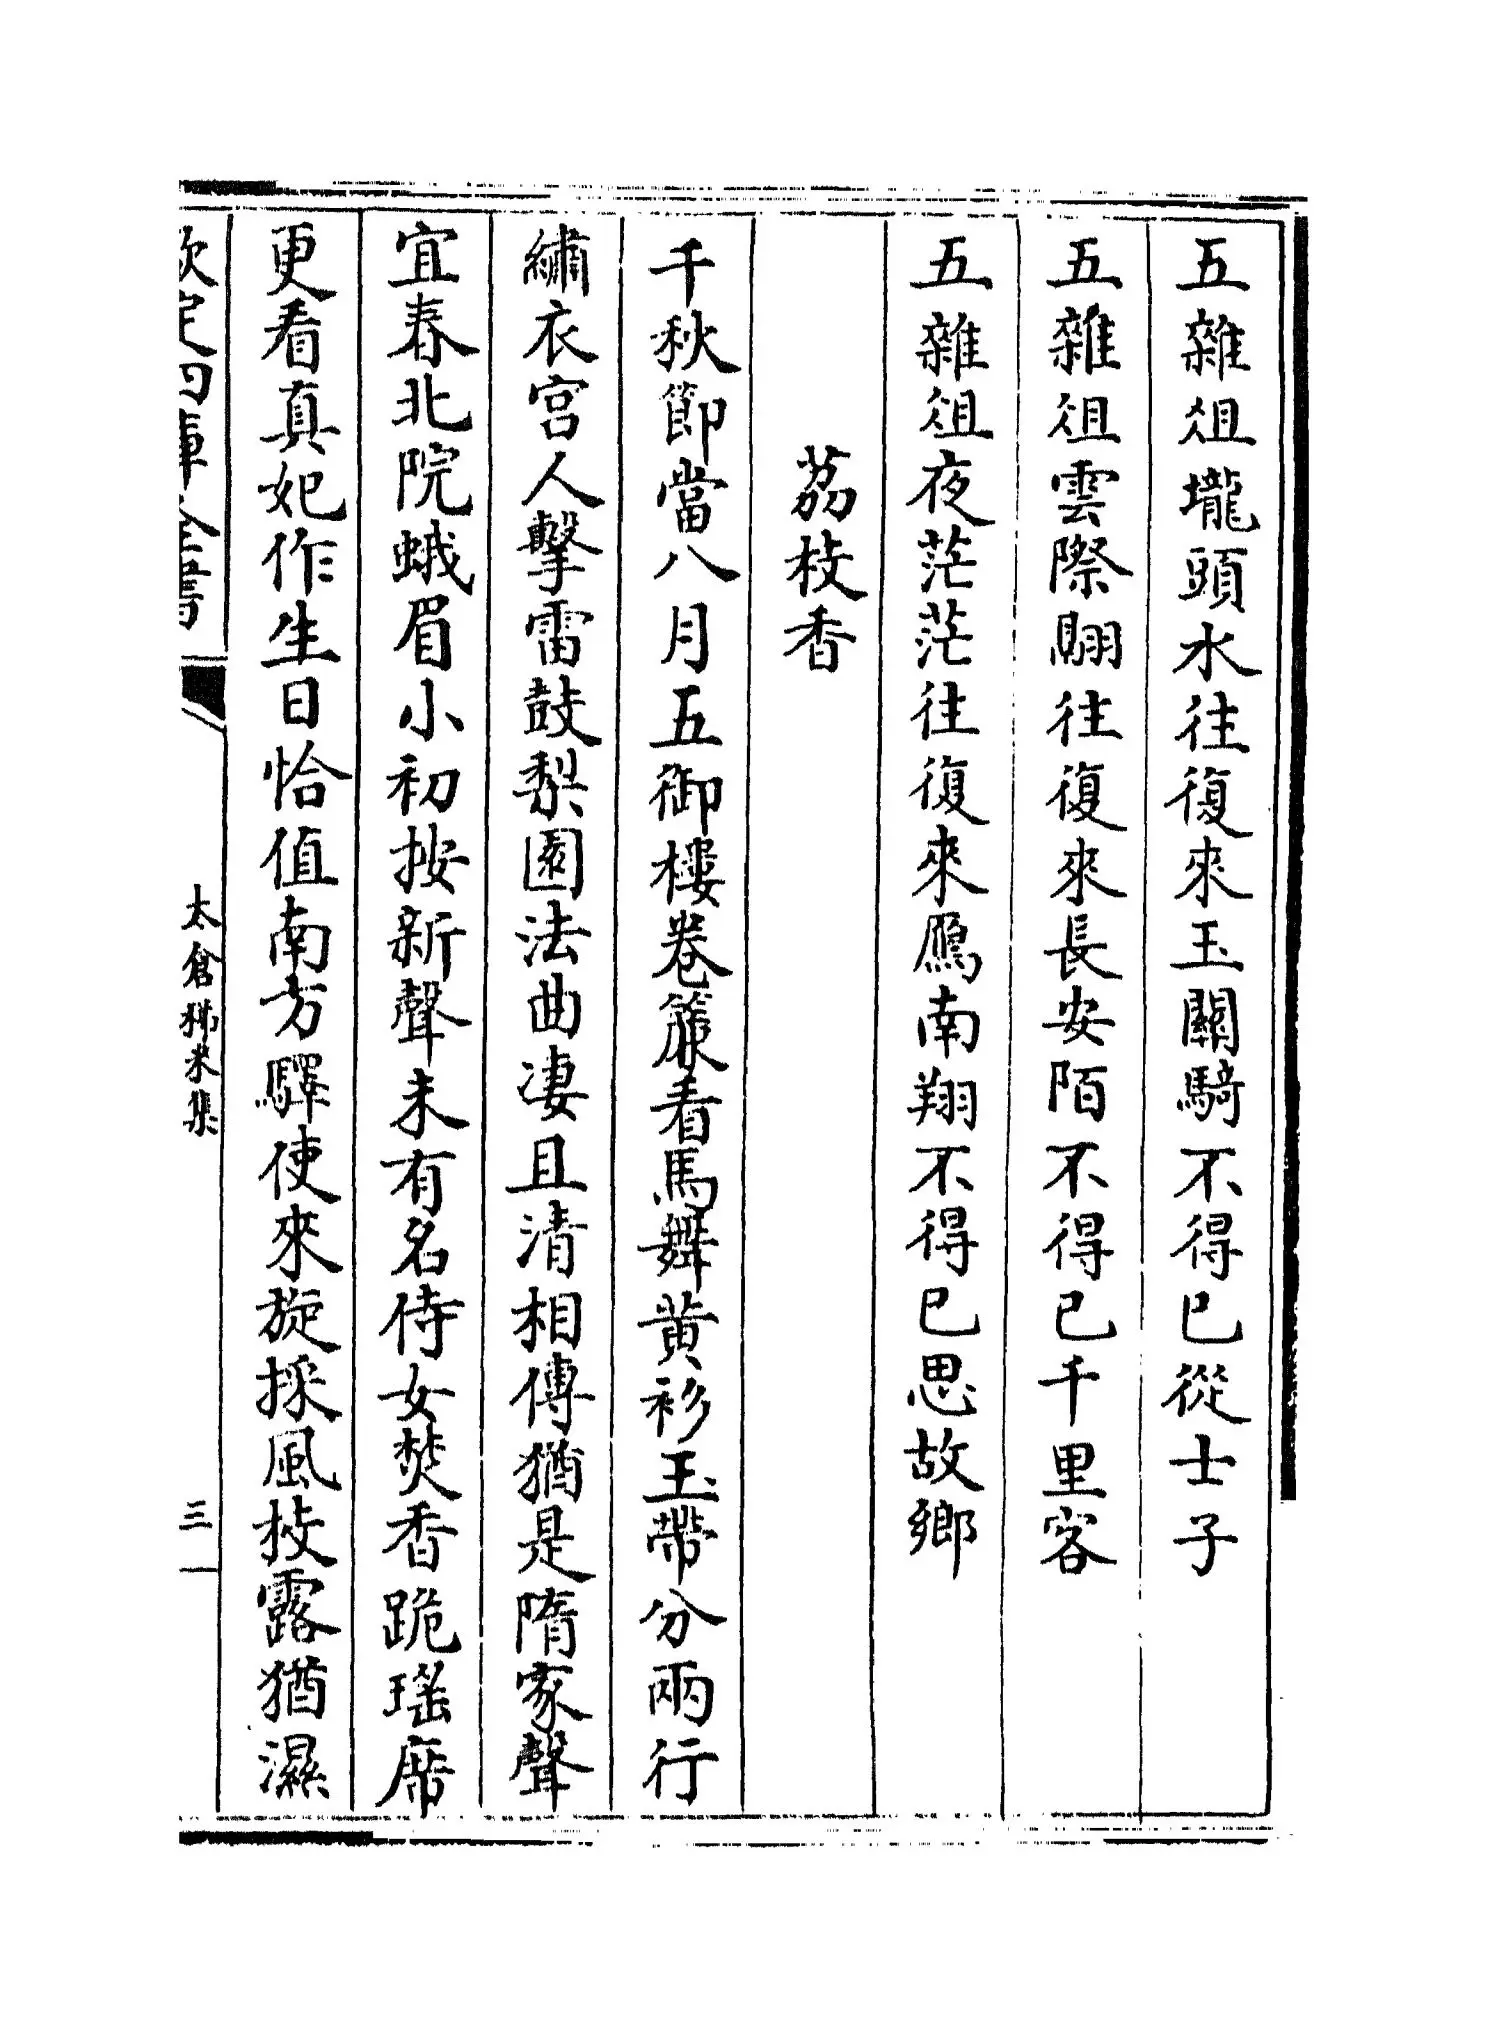 五雜俎壠頭水往復來玉關騎不得已從士子
五雜俎雲際翾往復來長安陌不得已千里客
五雜俎夜茫茫往復來鴈南翔不得已思故鄉
荔枝香
千秋節當八月五御樓卷簾看馬舞黄衫玉帶分兩行
繡衣宫人擊雷鼓梨園法曲凄且清相傳猶是隋家聲
宜春北院蛾眉小初按新聲未有名侍女焚香跪瑤席
更看真妃作生日恰值南方驛使來旋採風枝露猶濕
欽定四庫全書
太倉稊米集
三